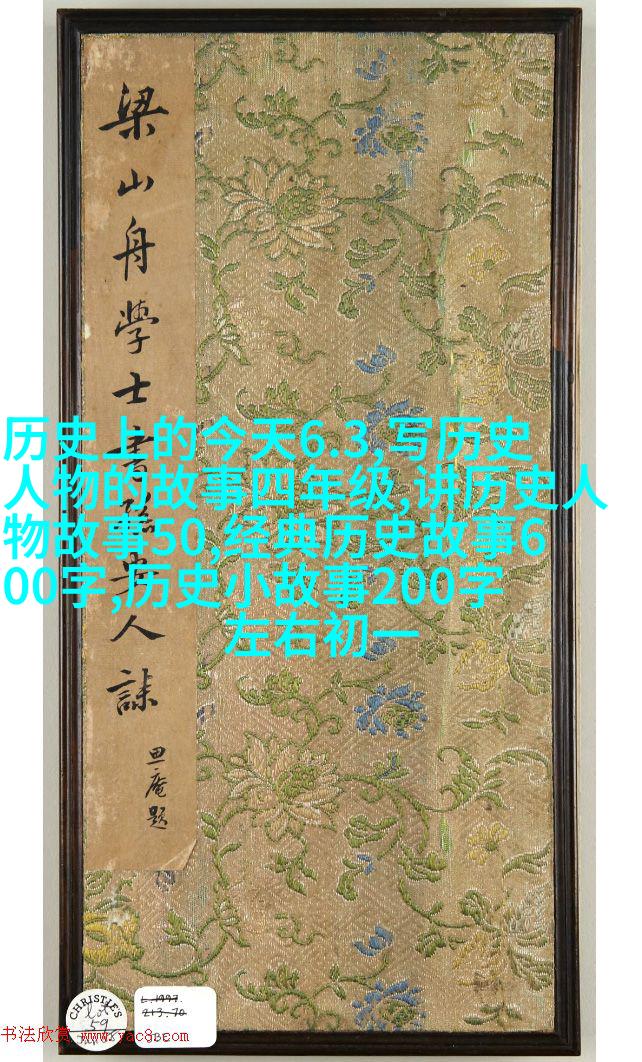 梁山舟學士書安人誄
庵題
历史上的今天6.3,写历史
人物的故事四年级,讲历史人
物故事50,经典历史故事6
00字,历史小故事200字
左右初一
CHRISTIE'S
Lot
59
L.1997.
213.70
书法欣赏 www.yac8.com